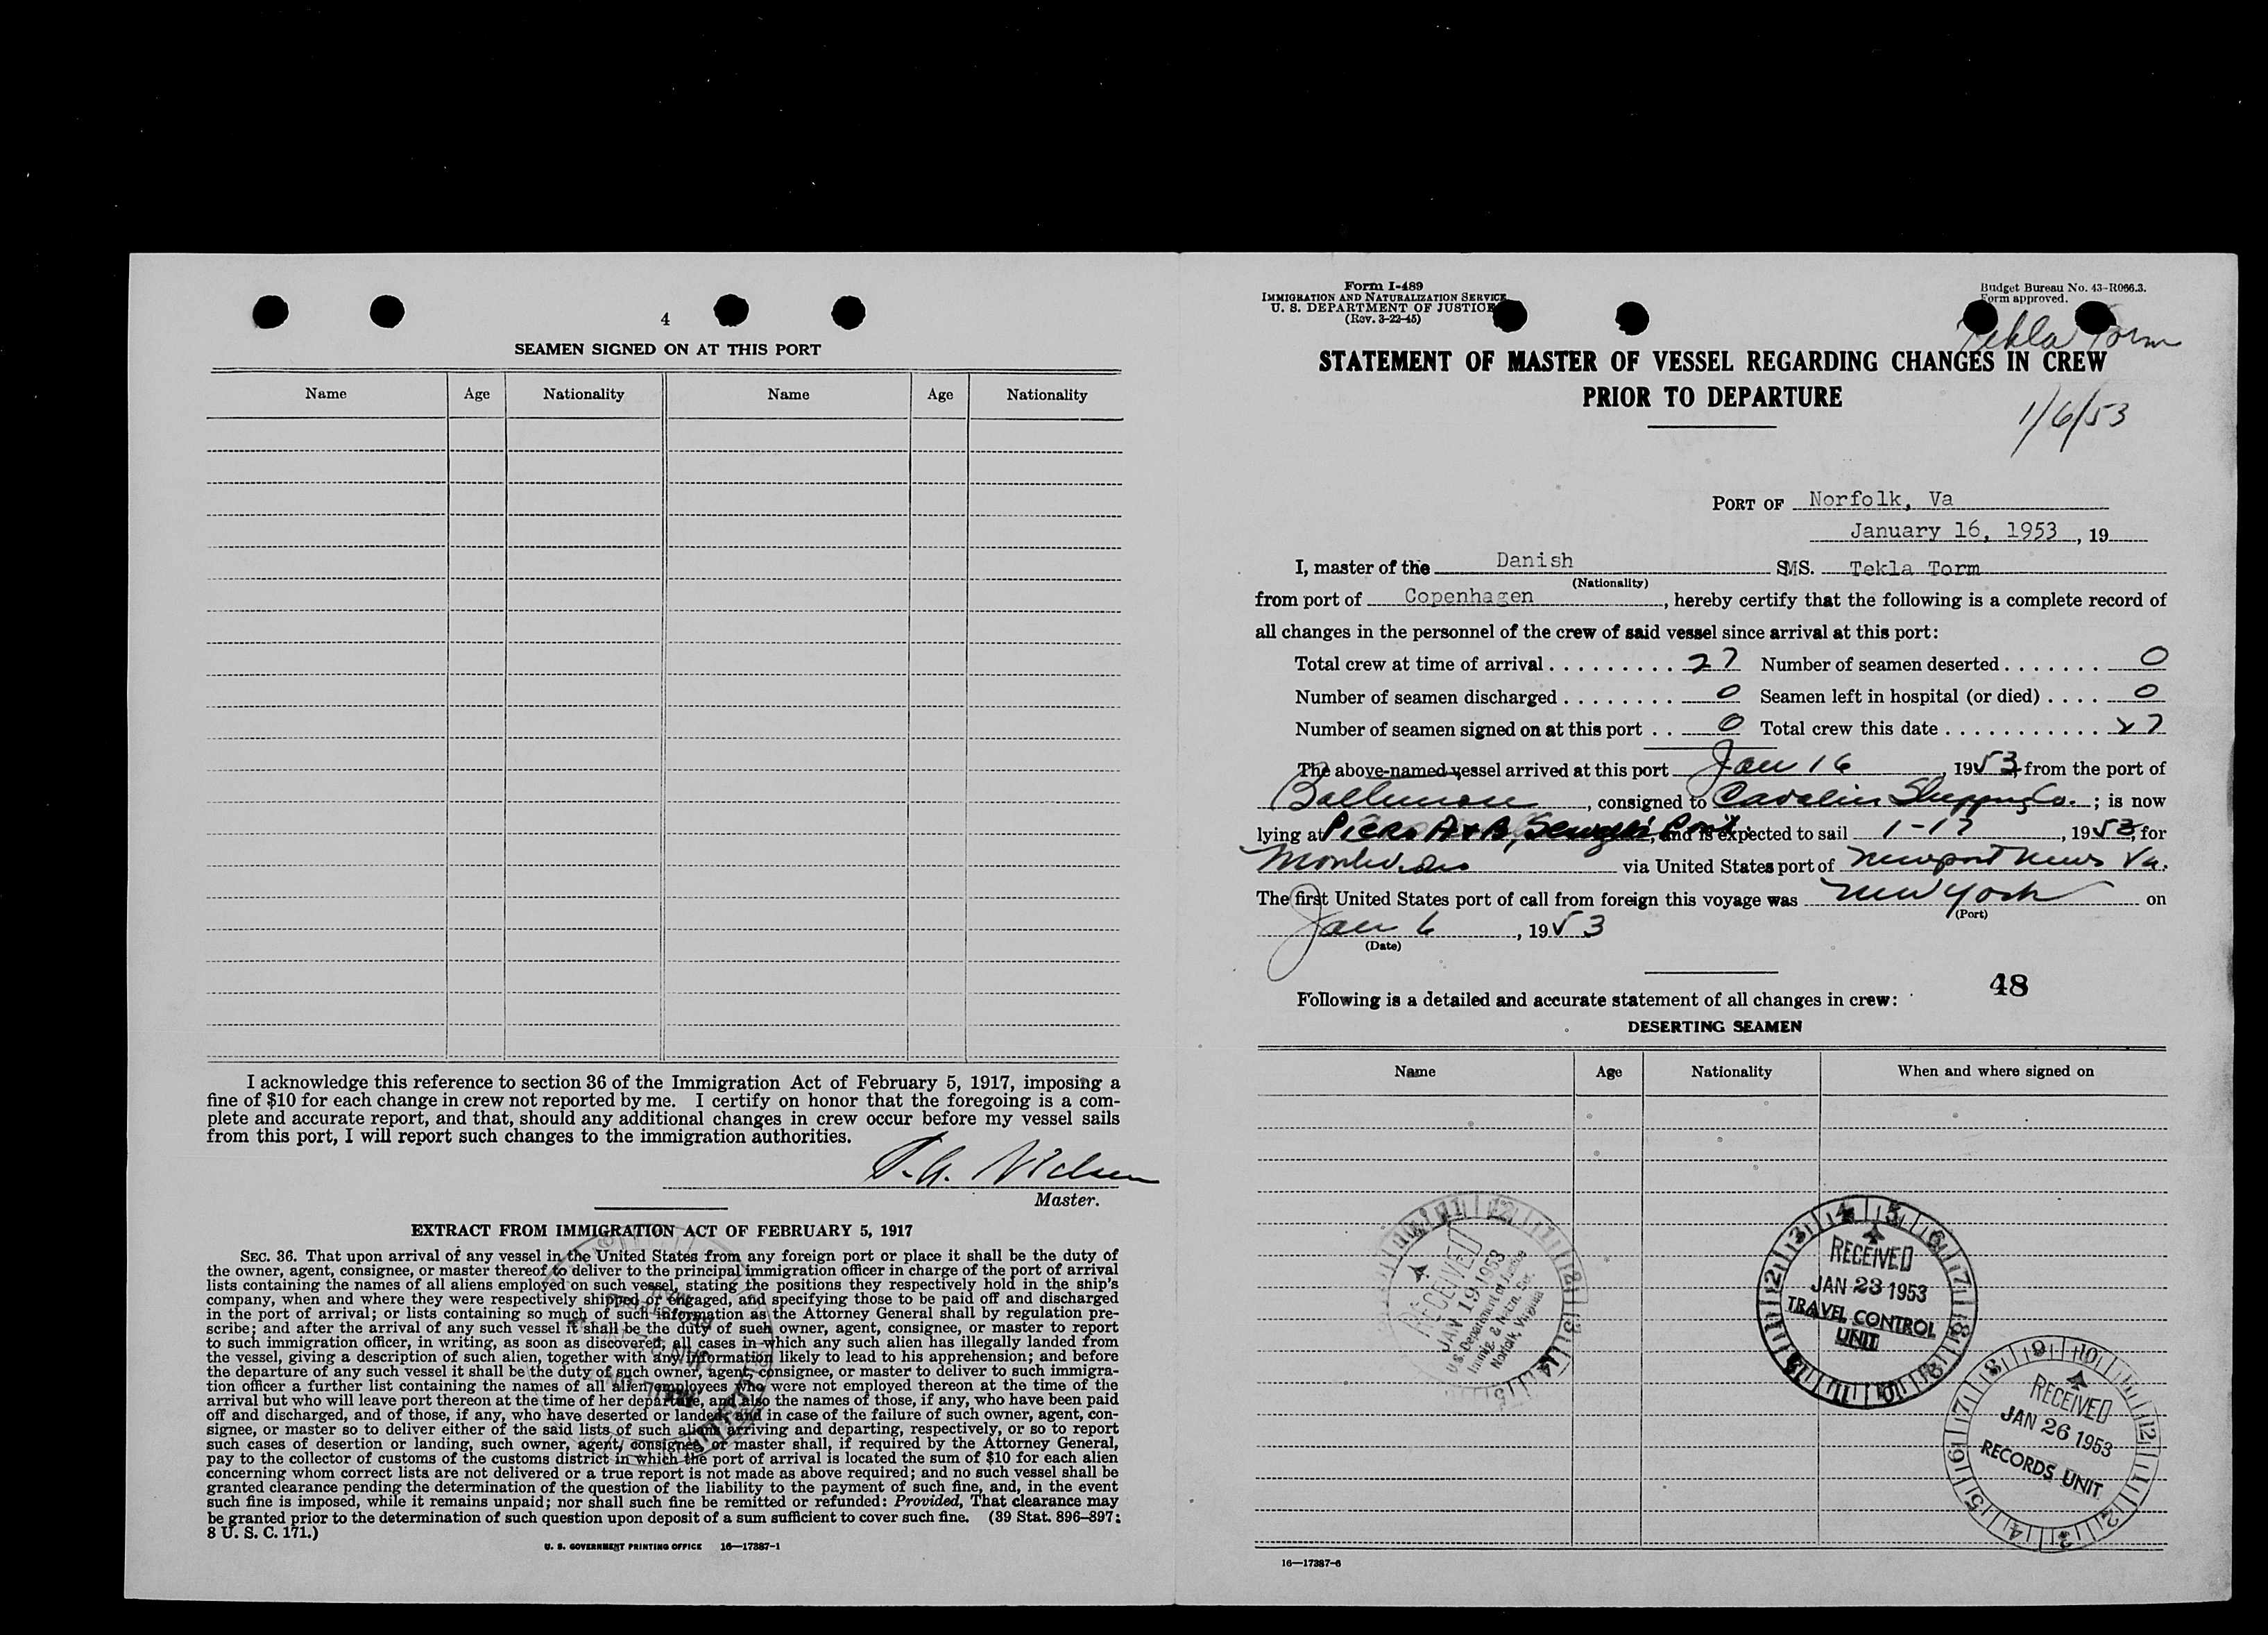 4
SEAMEN SIGNED ON AT THIS PORT
Name Age Nationality Name Age Nationality
I acknowledge this reference to section 36 of the Immigration Act of February 5, 1917, imposing a
fine of $10 for each change in crew not reported by me. I certify on honor that the foregoing is a com-
plete and accurate report, and that, should any additional changes in crew occur before my vessel sails
from this port, I will report such changes to the immigration authorities.
Master.
EXTRACT FROM IMMIGRATION ACT OF FEBRUARY 5, 1917
SEC. 36. That upon arrival of any vessel in the United States from any foreign port or place it shall be the duty of
the owner, agent, consignee, or master thereof to deliver to the principal immigration officer in charge of the port of arrival
lists containing the names of all aliens employed on such vessel, stating the positions they respectively hold in the ship's
company, when and where they were respectively shipped or engaged, and specifying those to be paid off and discharged
in the port of arrival; or lists containing so much of such information as the Attorney General shall by regulation pre-
scribe; and after the arrival of any such vessel it shall be the duty of such owner, agent, consignee, or master to report
to such immigration officer, in writing, as soon as discovered, all cases in which any such alien has illegally landed from
the vessel, giving a description of such alien, together with any information likely to lead to his apprehension; and before
the departure of any such vessel it shall be the duty of such owner, agent, consignee, or master to deliver to such immigra-
tion officer a further list containing the names of all alien employees who were not employed thereon at the time of the
arrival but who will leave port thereon at the time of her departure, and also the names of those, if any, who have been paid
off and discharged, and of those, if any, who have deserted or landed; and in case of the failure of such owner, agent, con-
signee, or master so to deliver either of the said lists of such aliens arriving and departing, respectively, or so to report
such cases of desertion or landing, such owner, agent, consignee, or master shall, if required by the Attorney General,
pay to the collector of customs of the customs district in which the port of arrival is located the sum of $10 for each alien
concerning whom correct lists are not delivered or a true report is not made as above required; and no such vessel shall be
granted clearance pending the determination of the question of the liability to the payment of such fine, and, in the event
such fine is imposed, while it remains unpaid; nor shall such fine be remitted or refunded: Provided, That clearance may
be granted prior to the determination of such question upon deposit of a sum sufficient to cover such fine. (39 Stat. 896–897;
8 U. S. C. 171.)
U. S. GOVERNMENT PRINTING OFFICE 16—17387-1
Form I-489
IMMIGRATION AND NATURALIZATION SERVICE
U. S. DEPARTMENT OF JUSTICE
(Rev. 3-22-45)
Budget Bureau No. 43-R066.3.
Form approved.
Tekla Torm
STATEMENT OF MASTER OF VESSEL REGARDING CHANGES IN CREW
PRIOR TO DEPARTURE
1/6/53
PORT OF Norfolk, Va
January 16, 1953, 19
I, master of the Danish SMS. Tekla Torm
(Nationality)
from port of Copenhagen, hereby certify that the following is a complete record of
all changes in the personnel of the crew of said vessel since arrival at this port:
Total crew at time of arrival . . . . . . . . . 27 Number of seamen deserted . . . . . . . 0
Number of seamen discharged . . . . . . . . 0 Seamen left in hospital (or died) . . . . 0
Number of seamen signed on at this port . . 0 Total crew this date . . . . . . . . . . . 27
The above-named vessel arrived at this port Jan 16, 1953 from the port of
Baltimore, consigned to Cavalier Shipping Co.; is now
lying at Piers A+B, and is expected to sail 1-17, 1953, for
Montevideo via United States port of Newport News Va.
The first United States port of call from foreign this voyage was New York on
(Port)
Jan 6, 1953
(Date)
48
Following is a detailed and accurate statement of all changes in crew:
DESERTING SEAMEN
Name Age Nationality When and where signed on
RECEIVED
JAN 19 1953
U.S. Department of Justice
Immig. & Natzn. Ser.
Norfolk, Virginia
RECEIVED
JAN 23 1953
TRAVEL CONTROL
UNIT
RECEIVED
JAN 26 1953
RECORDS UNIT
16—17387-6